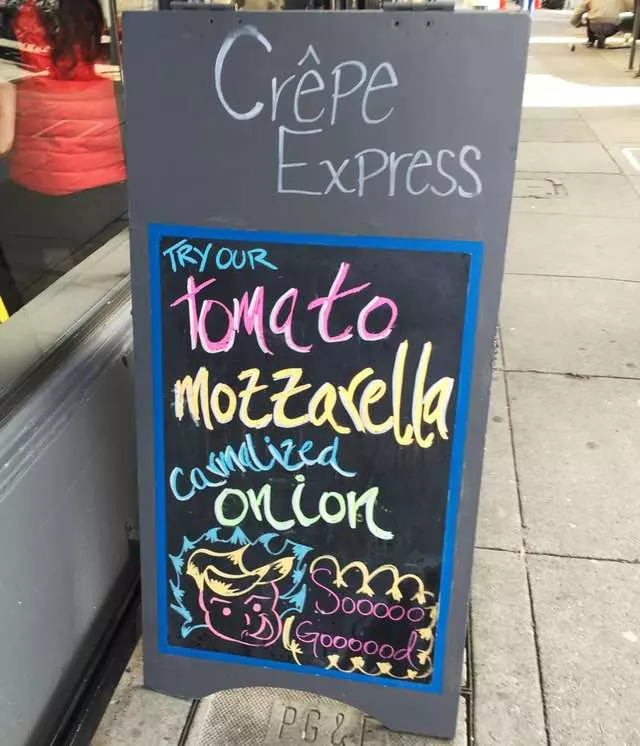 Crêpe
Express
TRY OUR
tomato
mozzarella
carmalized
onion
Sooooo
Gooooood
PG&E